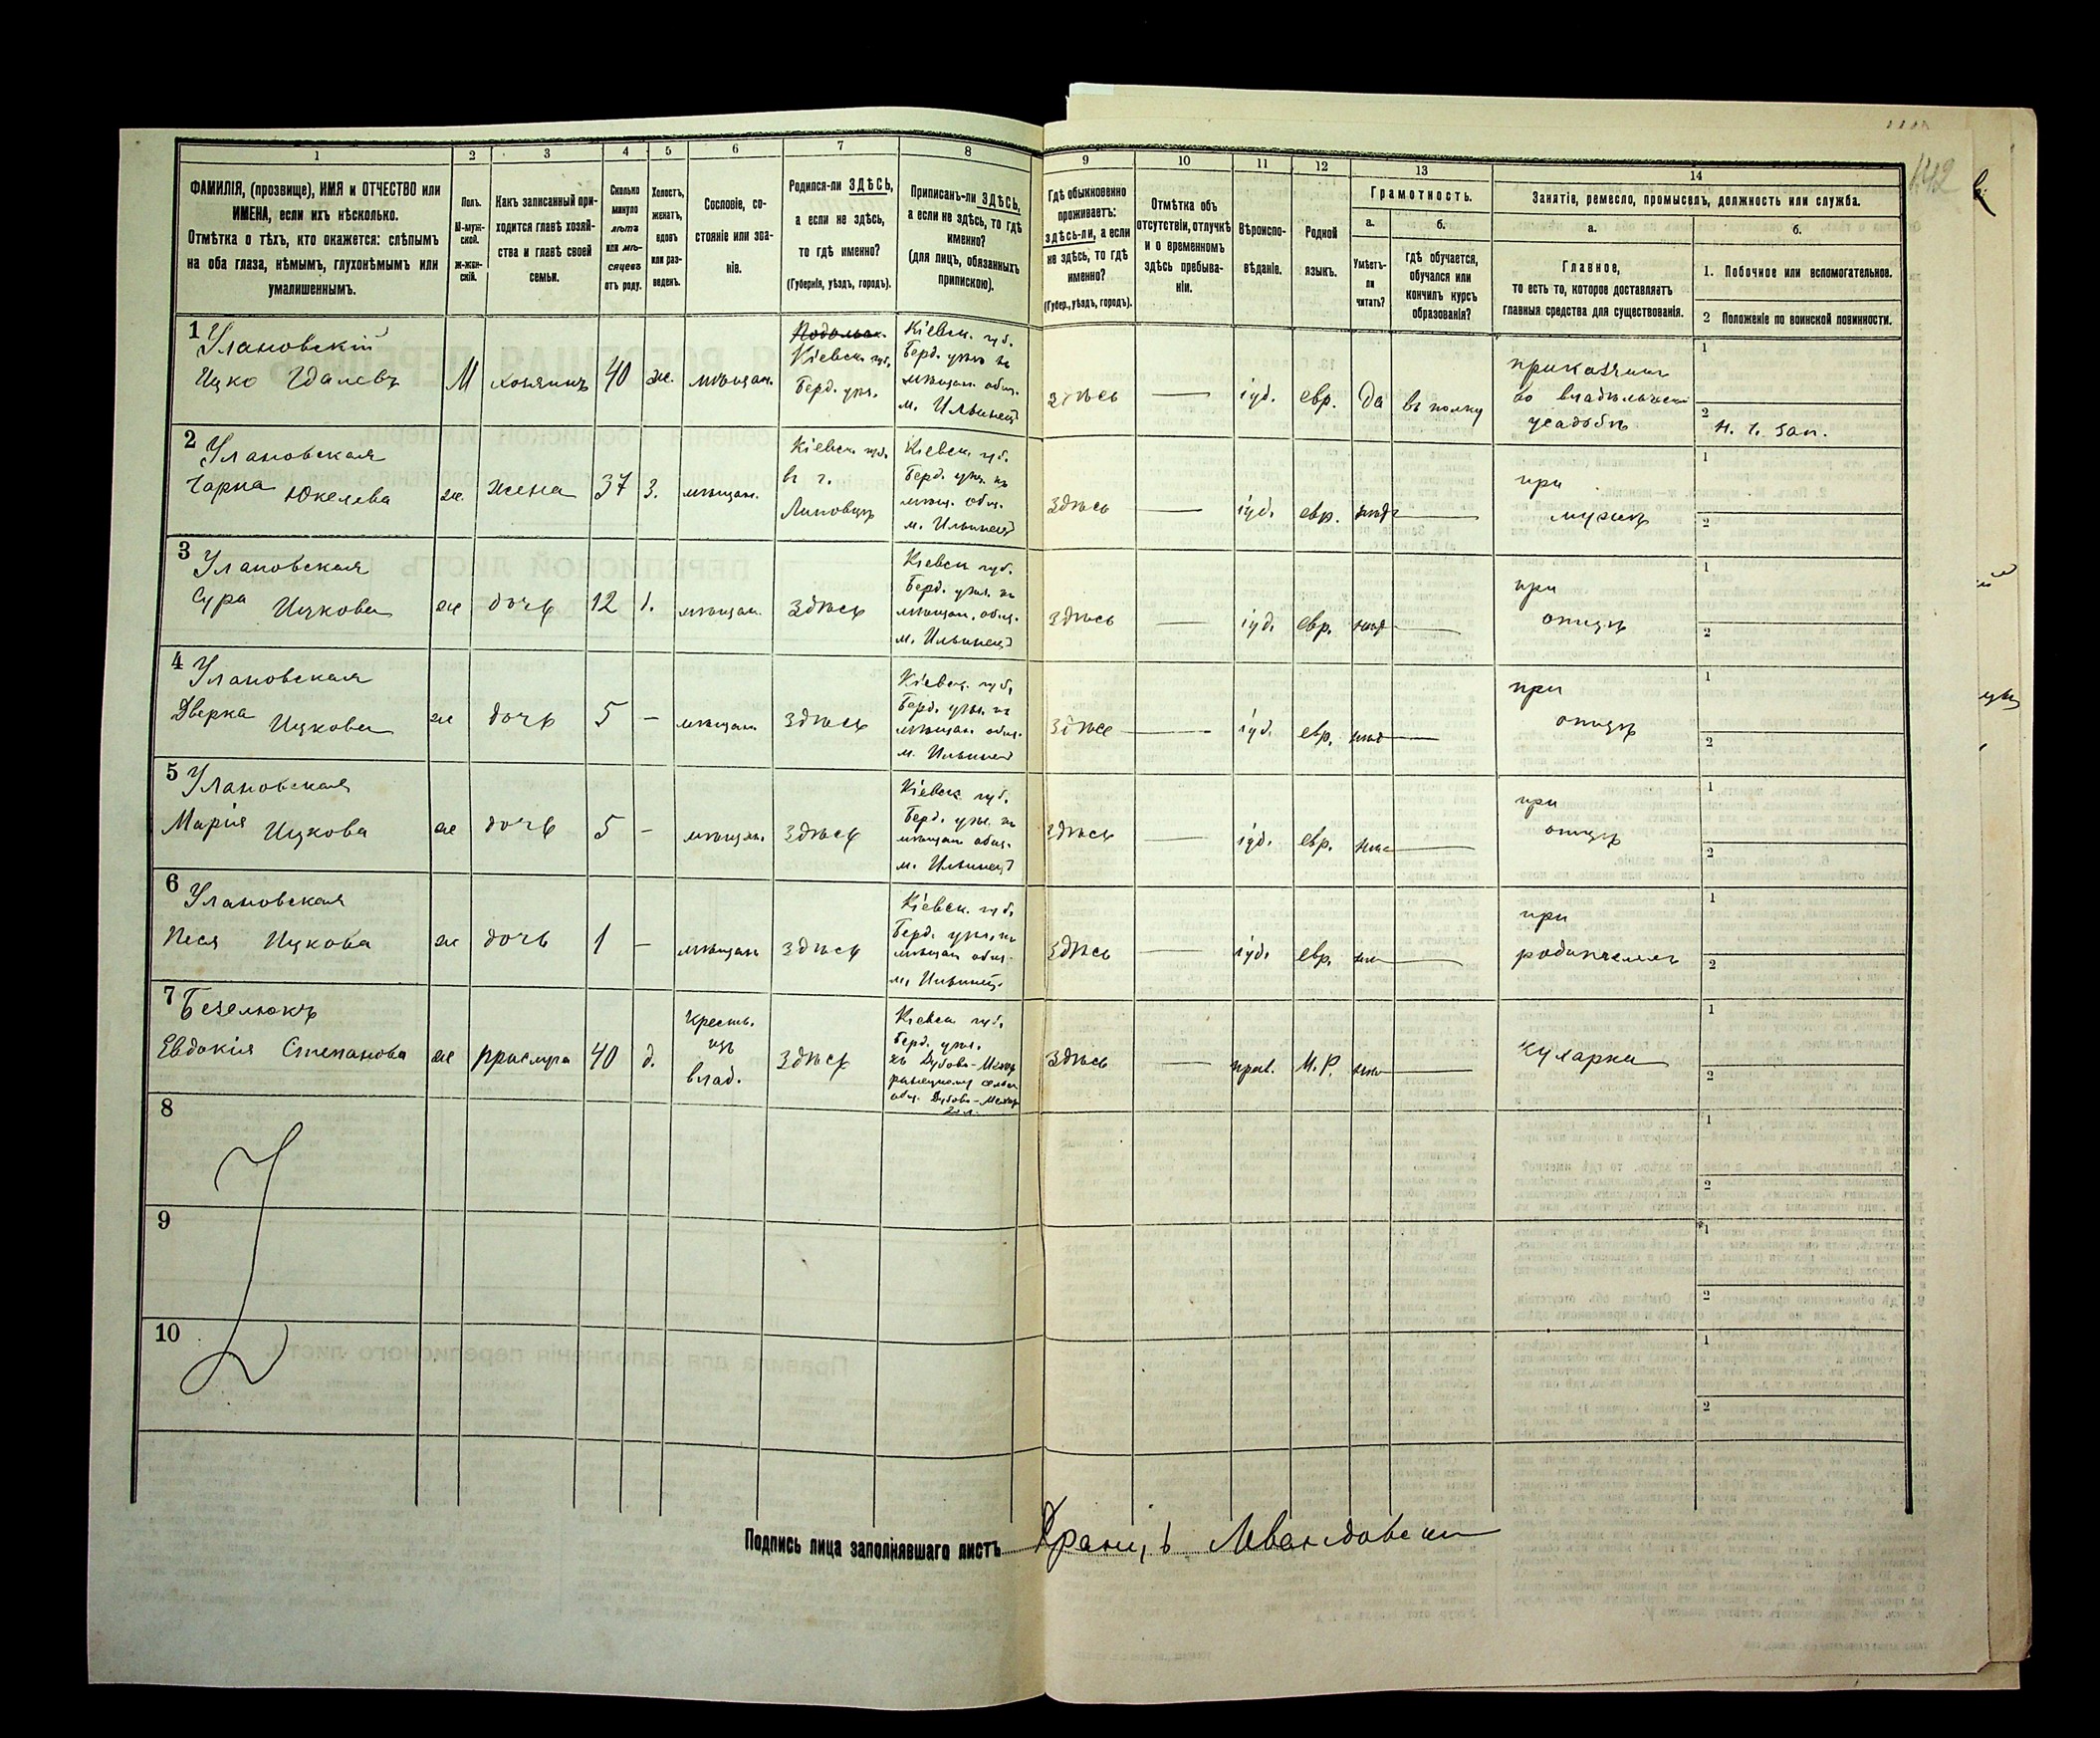 1 2 3 4 5 6 7 8 9 10 11 12 13 14
ФАМИЛІЯ, (прозвище), ИМЯ и ОТЧЕСТВО или
ИМЕНА, если ихъ нѣсколько.
Отмѣтка о тѣхъ, кто окажется: слѣпымъ
на оба глаза, нѣмымъ, глухонѣмымъ или
умалишеннымъ.
Полъ.
М-муж-
ской.
ж-жен-
скій.
Какъ записанный при-
ходится главѣ хозяй-
ства и главѣ своей
семьи.
Сколько
минуло
лѣтъ
или мѣ-
сяцевъ
отъ роду.
Холостъ,
женатъ,
вдовъ
или раз-
веденъ.
Сословіе, со-
стояніе или зва-
ніе.
Родился-ли ЗДѢСЬ,
а если не здѣсь,
то гдѣ именно?
(Губернія, уѣздъ, городъ).
Приписанъ-ли ЗДѢСЬ,
а если не здѣсь, то гдѣ
именно?
(для лицъ, обязанныхъ
припискою).
Гдѣ обыкновенно
проживаетъ:
здѣсь-ли, а если
не здѣсь, то гдѣ
именно?
(Губер., уѣздъ, городъ).
Отмѣтка объ
отсутствіи, отлучкѣ
и о временномъ
здѣсь пребыва-
ніи.
Вѣроиспо-
вѣданіе.
Родной
языкъ.
Грамотность.
а.
Умѣетъ-
ли
читать?
б.
гдѣ обучается,
обучался или
кончилъ курсъ
образованія?
Занятіе, ремесло, промыселъ, должность или служба.
а.
Главное,
то есть то, которое доставляетъ
главныя средства для существованія.
б.
1. Побочное или вспомогательное.
2 Положеніе по воинской повинности.
142
1 Улановскій
Ицко Гдалевъ
М
хозяинъ
40
ж.
мѣщан.
Подольск.
Кіевск. губ.
Берд. уѣз.
Кіевск. губ.
Берд. уѣз. къ
мѣщан. общ.
м. Ильинец
здѣсь
іуд.
евр.
да
въ полку
прикащик
во владѣльческ
усадьбѣ
1
2
н. ч. зап.
2 Улановская
Чарна Юкелева
ж.
жена
37
з.
мѣщан.
Кіевск. губ.
в г.
Липовцѣ
Кіевск. губ.
Берд. уѣз. къ
мѣщ. общ.
м. Ильинец
здѣсь
іуд.
евр.
при
мужѣ
1
2
3 Улановская
Сура Ицкова
ж
дочь
12
мѣщан.
здѣсь
Кіевск губ.
Берд. уѣз. къ
мѣщан. общ.
м. Ильинец
здѣсь
іуд.
евр.
при
отцѣ
1
2
4 Улановская
Дверка Ицкова
ж
дочь
5
мѣщан.
здѣсь
Кіевск. губ.
Берд. уѣз. къ
мѣщан общ.
м. Ильинец
здѣсь
іуд.
евр.
при
отцѣ
1
2
5 Улановская
Марія Ицкова
ж
дочь
5
мѣщан.
здѣсь
Кіевск губ.
Берд. уѣз. къ
мѣщан общ.
м. Ильинец
здѣсь
іуд.
евр.
при
отцѣ
1
2
6 Улановская
Песя Ицкова
ж
дочь
1
мѣщан
здѣсь
Кіевск. губ.
Берд. уѣз. къ
мѣщан общ.
м. Ильинец.
здѣсь
іуд.
евр.
при
родителяхъ
1
2
7 Безелюкъ
Евдокія Степанова
ж
прислуга
40
д.
Крест.
изъ
влад.
здѣсь
Кіевск губ.
Берд. уѣз.
къ Дубово-
общ. Дубово-
здѣсь
прав.
М.Р.
кухарка
1
2
8
1
2
9
1
2
10
1
2
Подпись лица заполнявшаго листъ
Францъ Левандовски